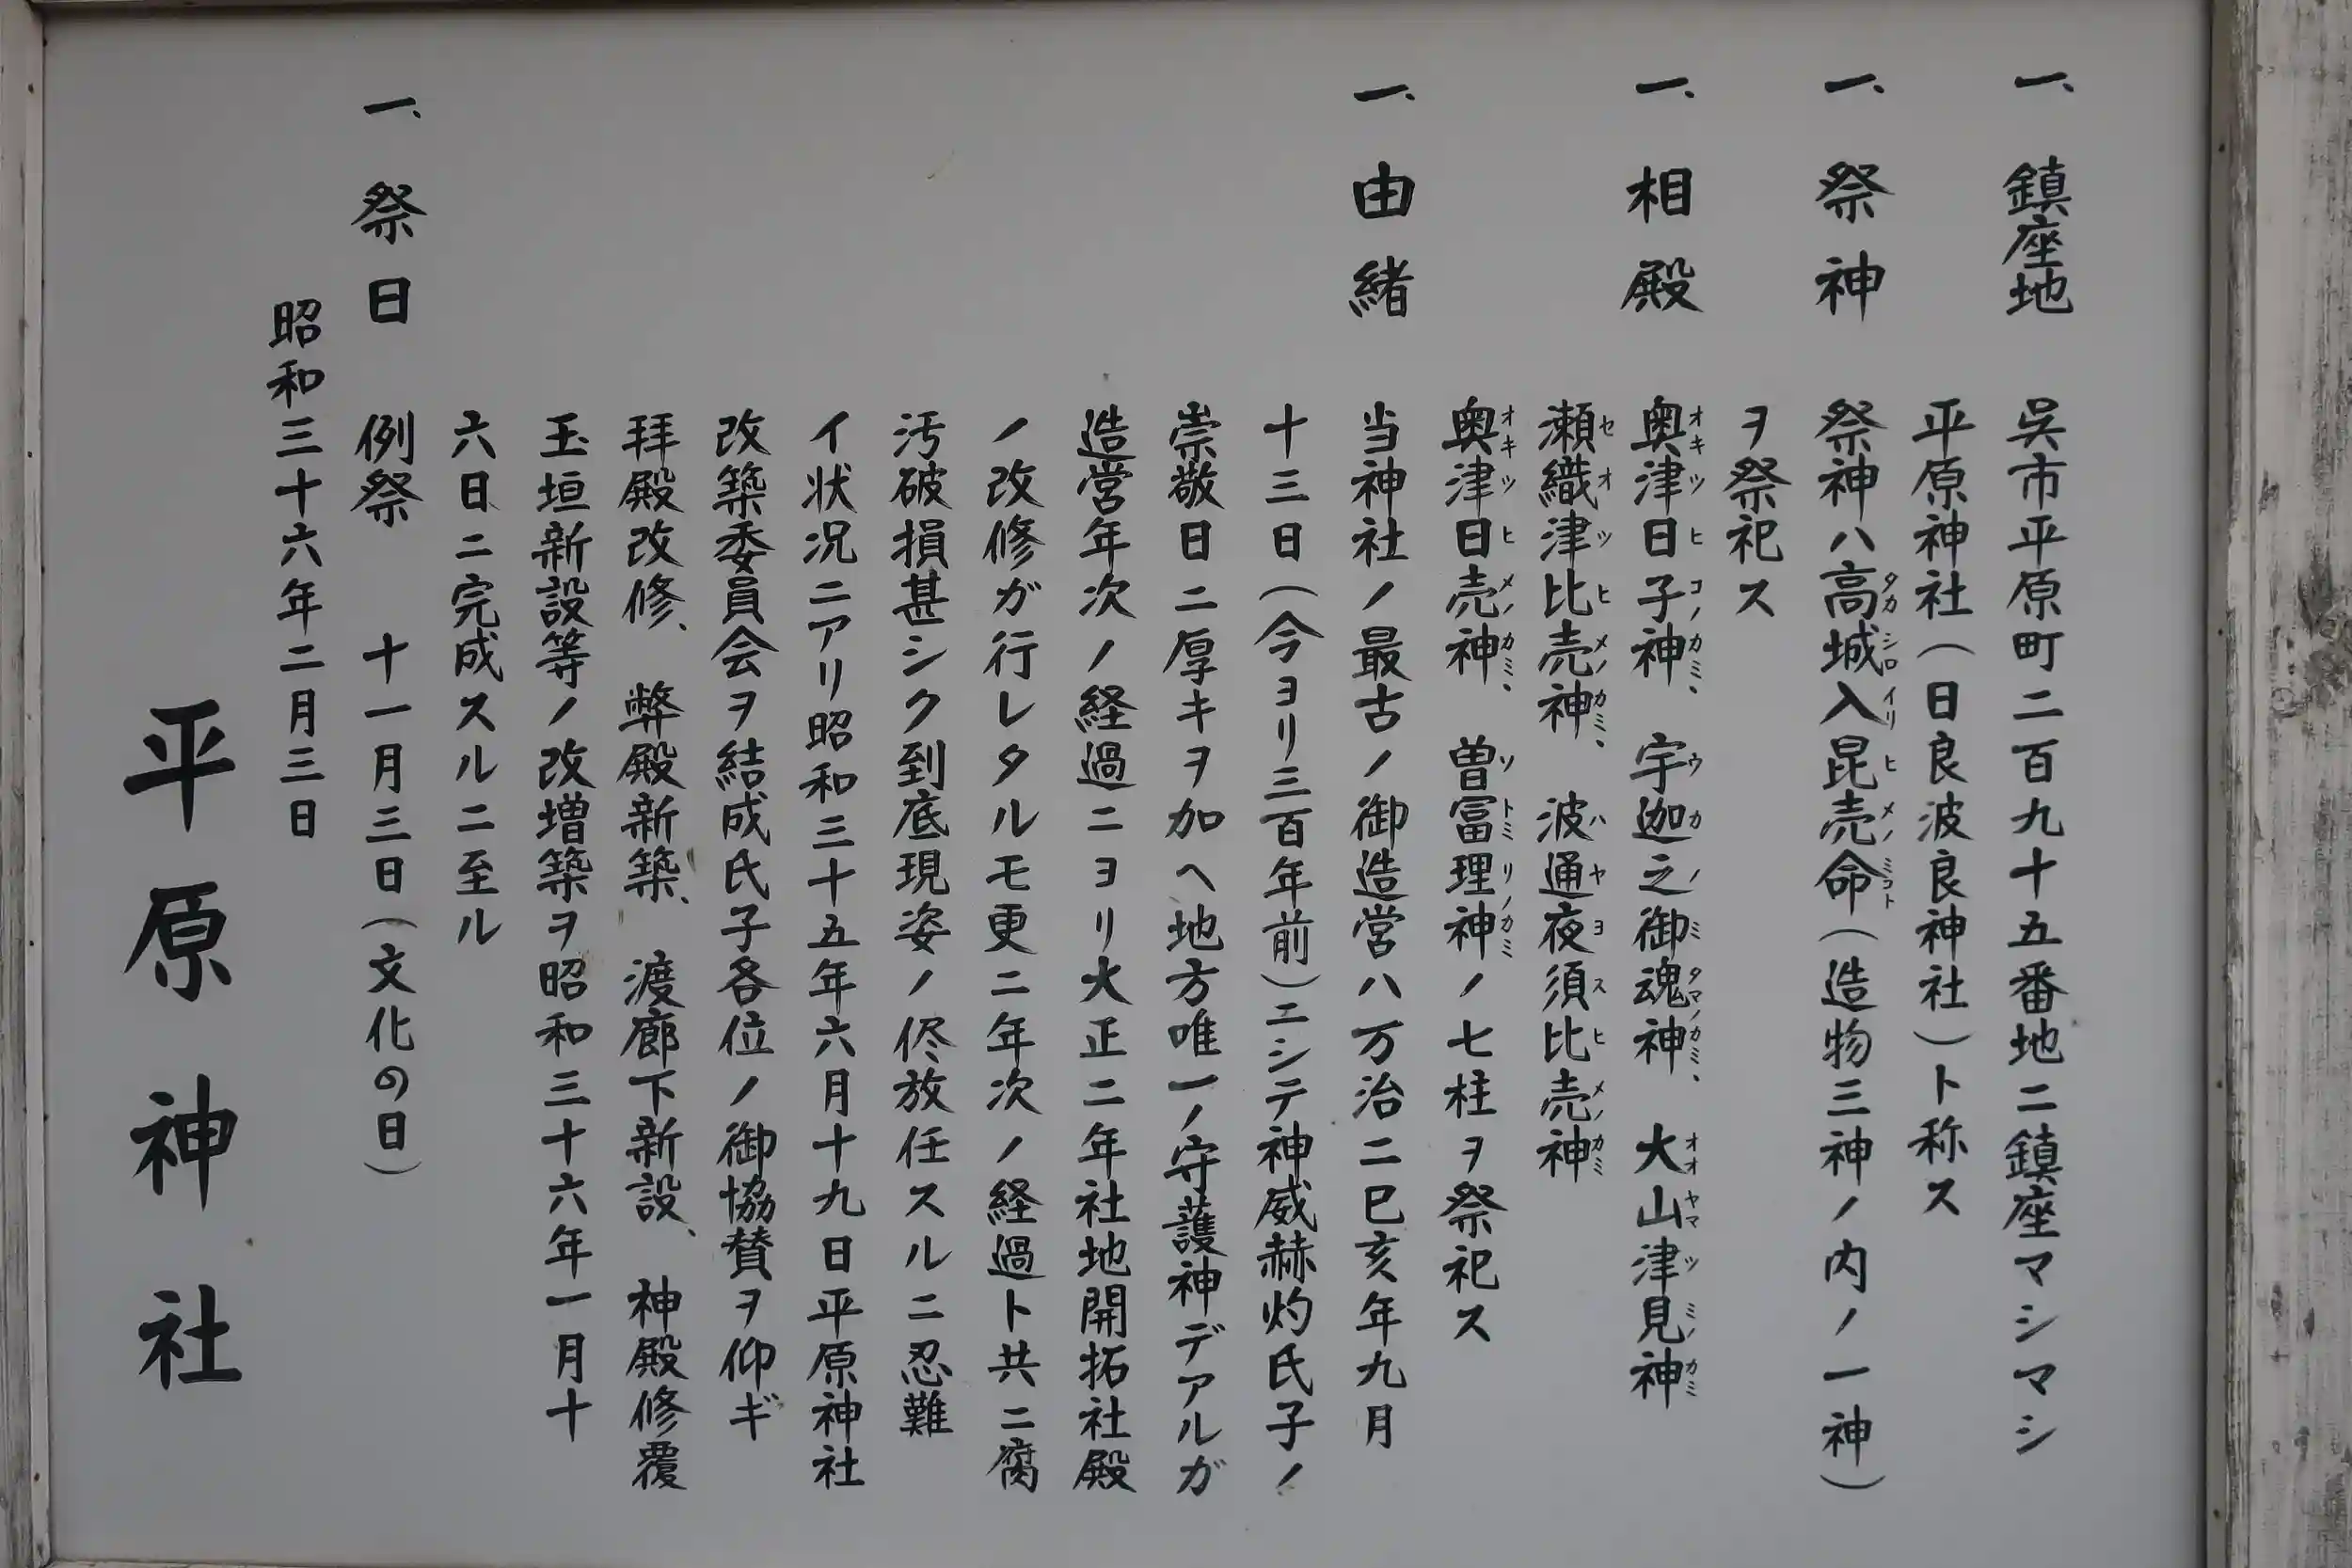 一、鎮座地 呉市平原町二百九十五番地ニ鎮座マシマシ
平原神社(日良波良神社)ト称ス
一、祭神 祭神ハ高城入昆売命(造物三神ノ内ノ一神)
タカシロイリヒメノミコト
ヲ祭祀ス
一、相殿 奥津日子神、宇迦之御魂神、大山津見神
オキツヒコノカミ、ウカノミタマノカミ、オオヤマツミノカミ
瀬織津比売神、波通夜須比売神
セオツヒメノカミ、ハヤヨスヒメノカミ
奥津日売神、曽富理神ノ七柱ヲ祭祀ス
オキツヒメノカミ、ソトミリノカミ
一、由緒 当神社ノ最古ノ御造営ハ万治二巳亥年九月
十三日(今ヨリ三百年前)ニシテ神威赫灼氏子ノ
崇敬日ニ厚キヲ加ヘ地方唯一ノ守護神デアルガ
造営年次ノ経過ニヨリ大正二年社地開拓社殿
ノ改修ガ行レタルモ更ニ年次ノ経過ト共ニ腐
汚破損甚シク到底現姿ノ侭放任スルニ忍難
イ状況ニアリ昭和三十五年六月十九日平原神社
改築委員会ヲ結成氏子各位ノ御協賛ヲ仰ギ
拝殿改修、弊殿新築、渡廊下新設、神殿修覆
玉垣新設等ノ改増築ヲ昭和三十六年一月十
六日ニ完成スルニ至ル
一、祭日 例祭 十一月三日(文化の日)
昭和三十六年二月三日
平原神社